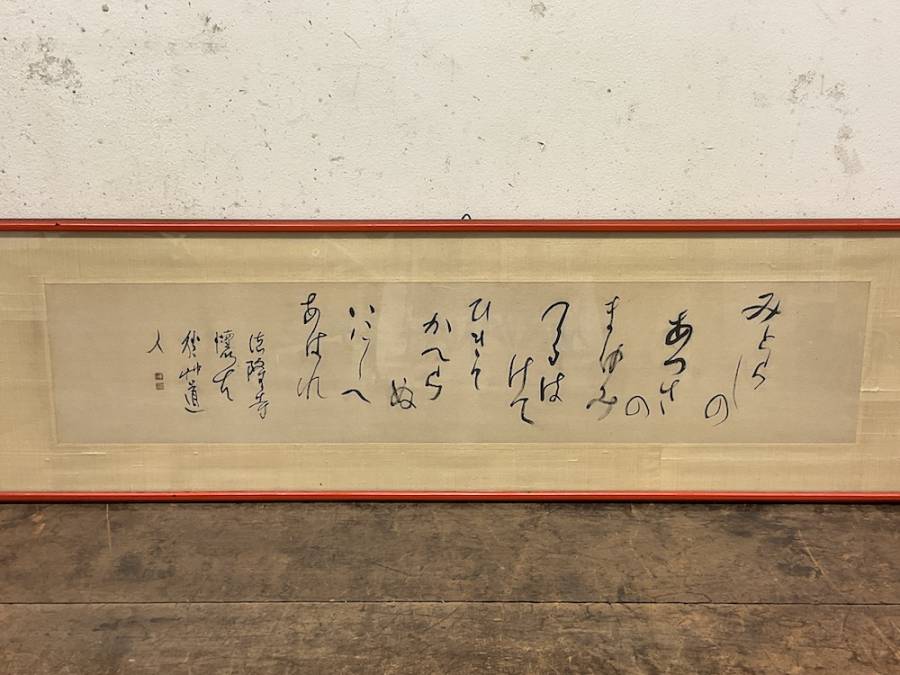 みとらし
の
あつさ
の
まゆみ
つるは
けて
ひきて
かへら
ぬ
いにしへ
あはれ
法隆寺
懷古
秋艸道
人